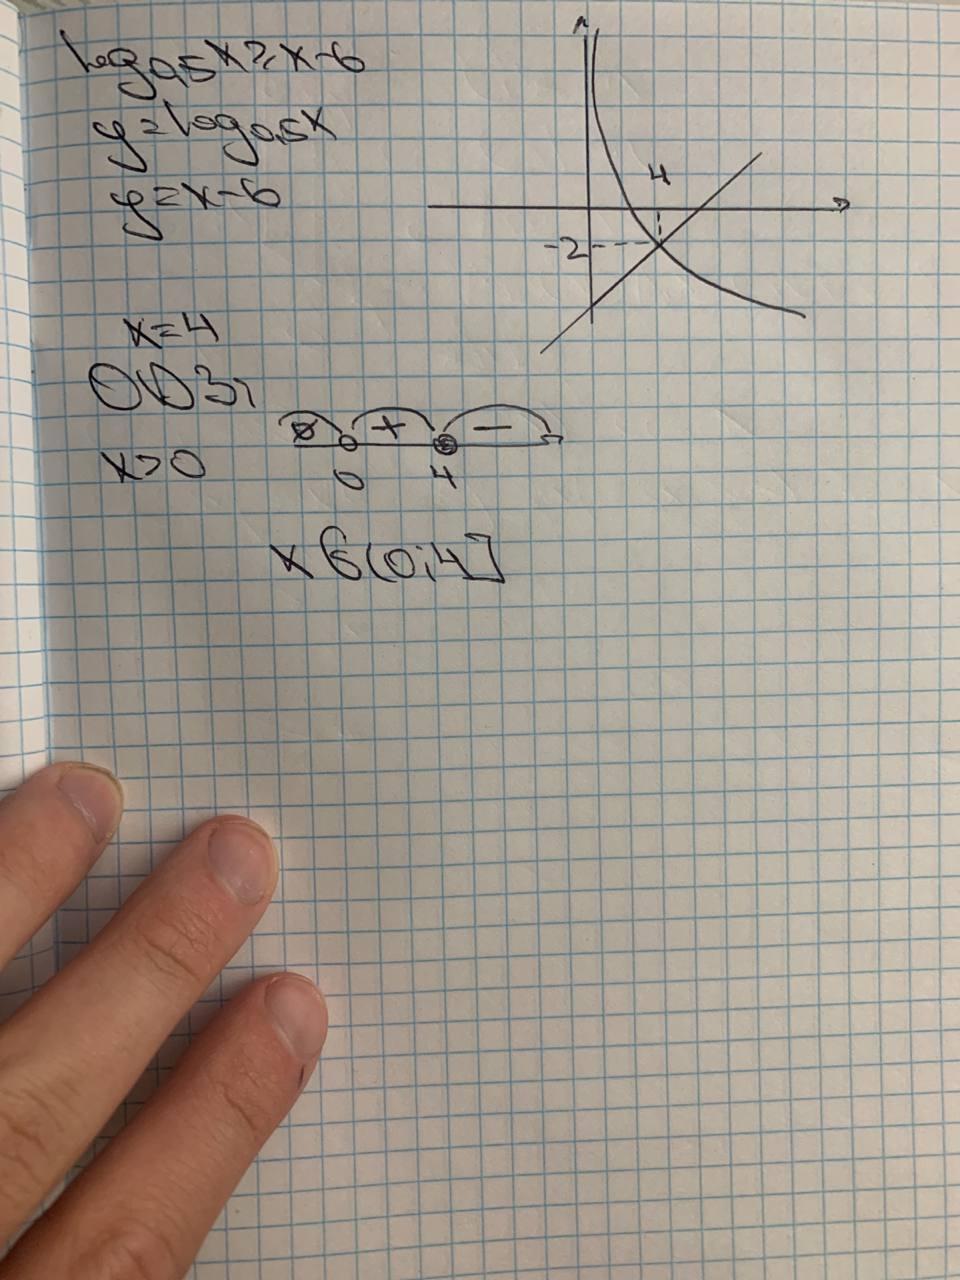 log₀,₅x ≥ x-6
y = log₀,₅x
y = x-6
4
-2
x=4
ОДЗ:
ø + -
x>0
0 4
x ∈ (0;4]